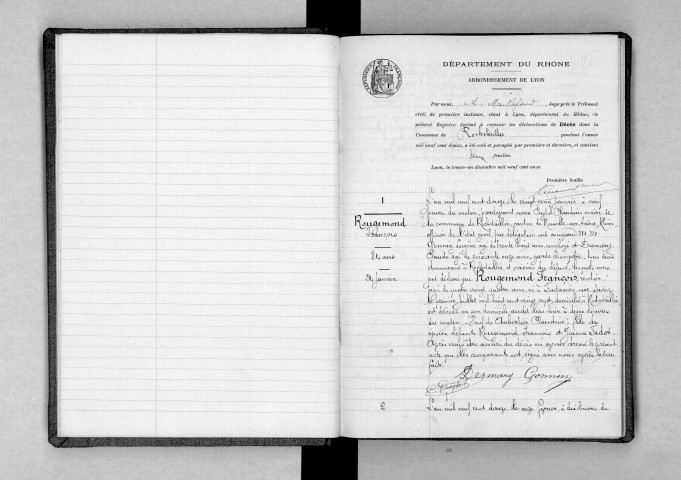 DÉPARTEMENT DU RHÔNE
ARRONDISSEMENT DE LYON
Par nous, Juge près le Tribunal
civil de première instance, séant à Lyon, département du Rhône, le
présent Registre destiné à recevoir les déclarations de Décès dans la
Commune de Rochetaillée pendant l'année
mil neuf cent douze, a été coté et paraphé par première et dernière, et contient
feuilles.
Lyon, le trente-un décembre mil neuf cent onze.
Première feuille
1
Rougemond
François
24 Janvier
L'an mil neuf cent douze, le vingt Janvier à neuf
heures du matin, pardevant nous Claudius maire de
la commune de Rochetaillée, canton de Neuville sur Saône, Rhône
officier de l'état civil par délégation ont comparu MM.
Gonnon Eugène âgé de trente huit ans, employé et Desmary
Claude âgé de soixante onze ans, garde champêtre, tous deux
domiciliés à Rochetaillée et voisins du défunt, lesquels nous
ont déclaré que Rougemond François, rentier
âgé de quatre vingt quatre ans, né à Fontaines sur Saône
mil huit cent vingt sept, domicilié à Rochetaillée
est décédé en son domicile audit lieu hier à deux heures
du matin Claudine. Fils de
défunts Rougemond François et Jeanne
Après nous être assuré du décès en avons dressé le présent
acte que les comparants ont signé avec nous après lecture
faite.
Desmary Gonnon
2
L'an mil neuf cent douze, le onze Février, à dix heures du